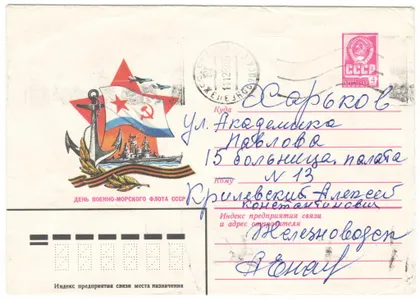 СССР
ПОЧТА
Куда
Харьков
ул. Академика
Павлова
15 больница, палата
N 13
Кому
Крилевский Алексей
Константинович
ДЕНЬ ВОЕННО-МОРСКОГО ФЛОТА СССР
Индекс предприятия связи
и адрес отправителя
Железноводск
Индекс предприятия связи места назначения